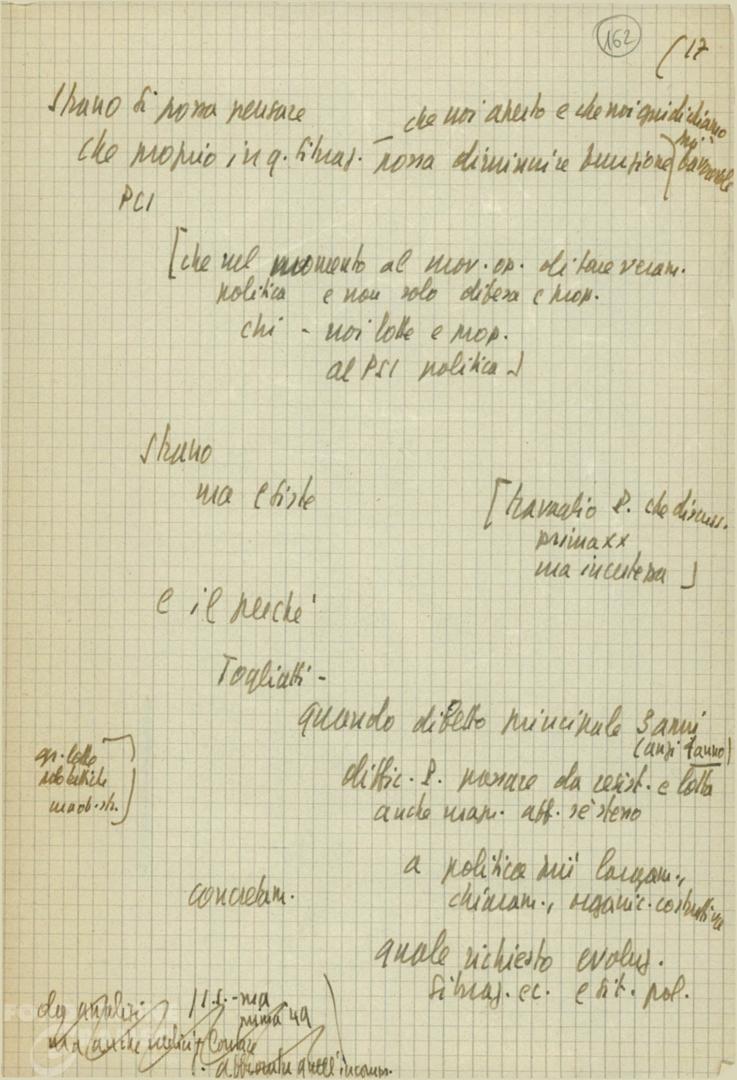 162
(17
Strano si possa pensare
che noi aperto e che noi qui diciamo
che proprio in q. situaz. — possa diminuire funzione
più
PCI
[che nel momento al mov. op. di fare veram.
politica e non solo difesa e prop.
chi - noi lotte e prop.
al PSI politica]
Strano
ma esiste
[travaglio P. che discuss.
prima xx
ma incertezza]
e il perché
Togliatti -
quando difetto principale 3 anni
(anzi 4 anno)
gr. lotte
diffic. P. passare da resist. e lotta
anche aff. sé stesso
a politica più largam.,
concretam.
chiaram., organic. costruttiva
quale richiesto evoluz.
situaz. ec. e sit. pol.
da analisi
I s. - ma
prima '49
ma anche